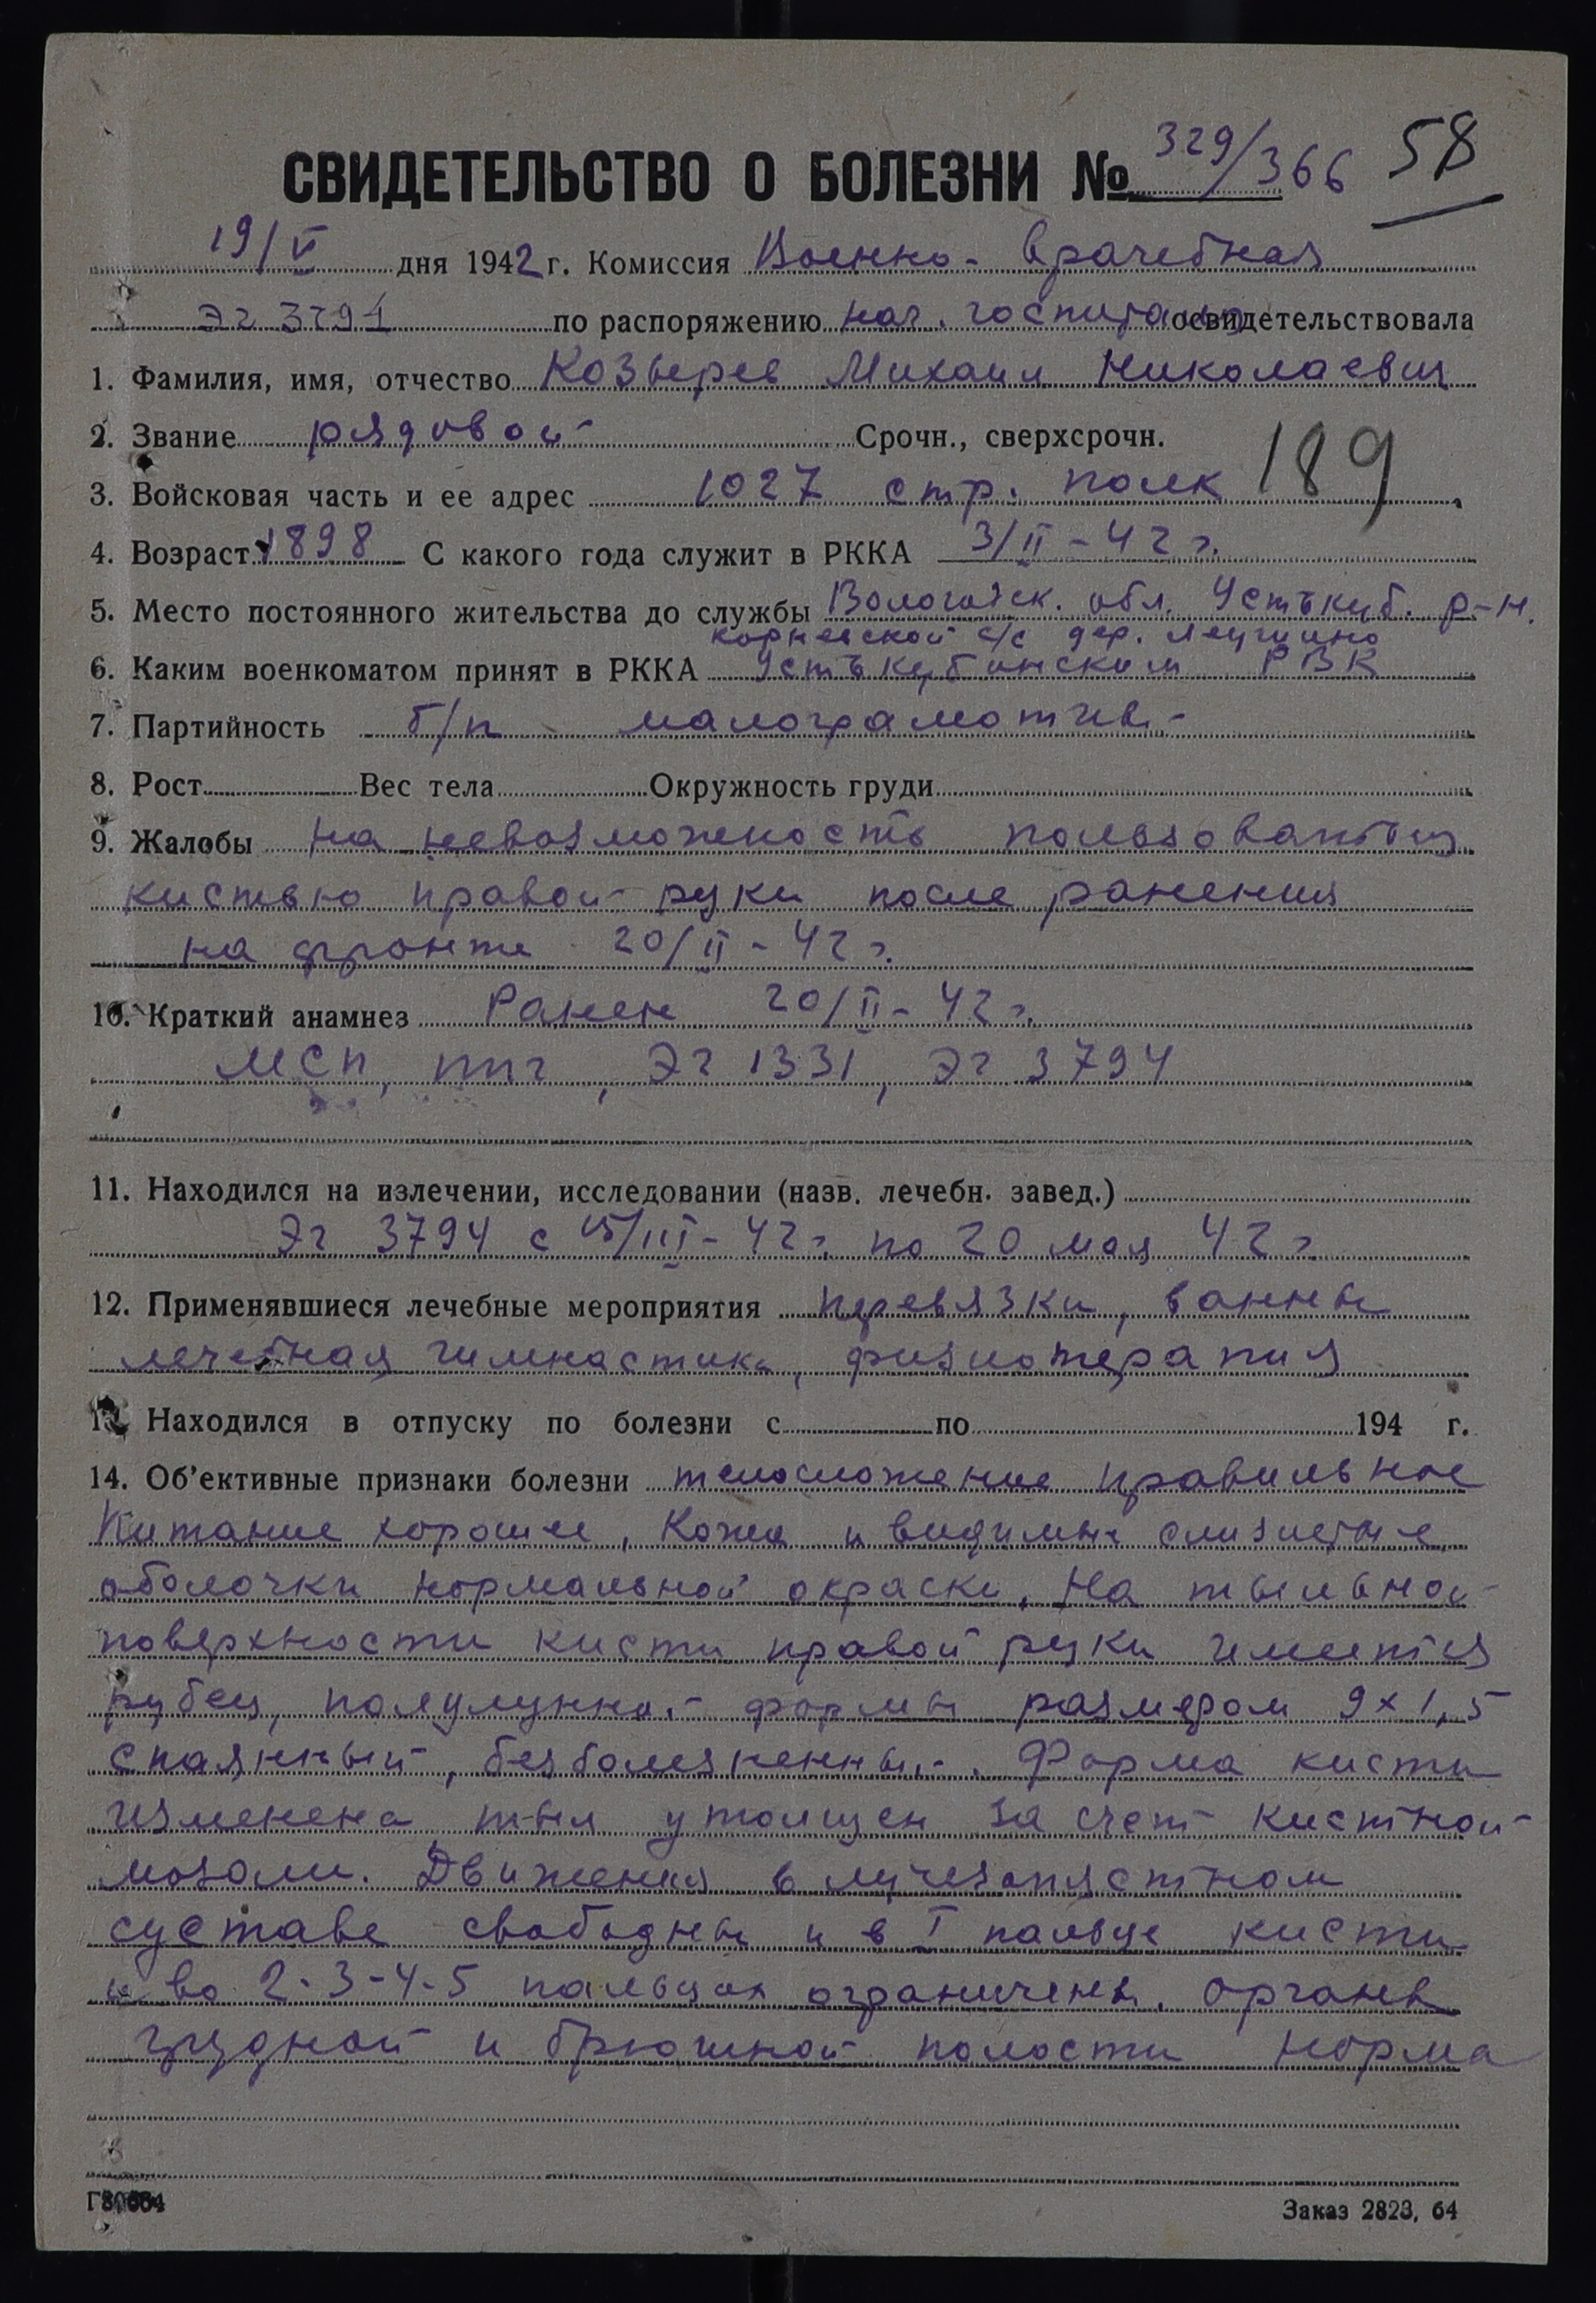 СВИДЕТЕЛЬСТВО О БОЛЕЗНИ № 329/366 58
19/V дня 1942 г. Комиссия Военно-врачебная
ЭГ 3794 по распоряжению нач. госпиталя освидетельствовала
1. Фамилия, имя, отчество Козырев Михаил Николаевич
2. Звание рядовой Срочн., сверхсрочн.
3. Войсковая часть и ее адрес 1027 стр. полк 189
4. Возраст 1898 С какого года служит в РККА 3/II-42 г.
5. Место постоянного жительства до службы Вологодск. обл. Устькуб. р-н.
корневской с/с дер.
6. Каким военкоматом принят в РККА Устькубинским РВК
7. Партийность б/п малограмотный
8. Рост Вес тела Окружность груди
9. Жалобы на невозможность пользоваться
кистью правой руки после ранения
на фронте 20/II-42 г.
10. Краткий анамнез Ранен 20/II-42 г.
МСП, ППГ, ЭГ 1331, ЭГ 3794
11. Находился на излечении, исследовании (назв. лечебн. завед.)
ЭГ 3794 с 15/III-42 г. по 20 мая 42 г
12. Применявшиеся лечебные мероприятия перевязки, ванны
лечебная гимнастика, физиотерапия
13. Находился в отпуску по болезни с по 194 г.
14. Об'ективные признаки болезни телосложение правильное
Питание хорошее, кожа и видимые слизистые
оболочки нормальной окраски. На тыльной
поверхности кисти правой руки имеется
рубец, полулунной формы размером 9х1,5
спаянный, безболезненный. Форма кисти
изменена тыл утолщен за счет кистной
мозоли. Движения в лучезапястном
суставе свободны и в I пальце кисти
и во 2-3-4-5 пальцах ограничены. Органы
грудной и брюшной полости норма
Заказ 2823, 64